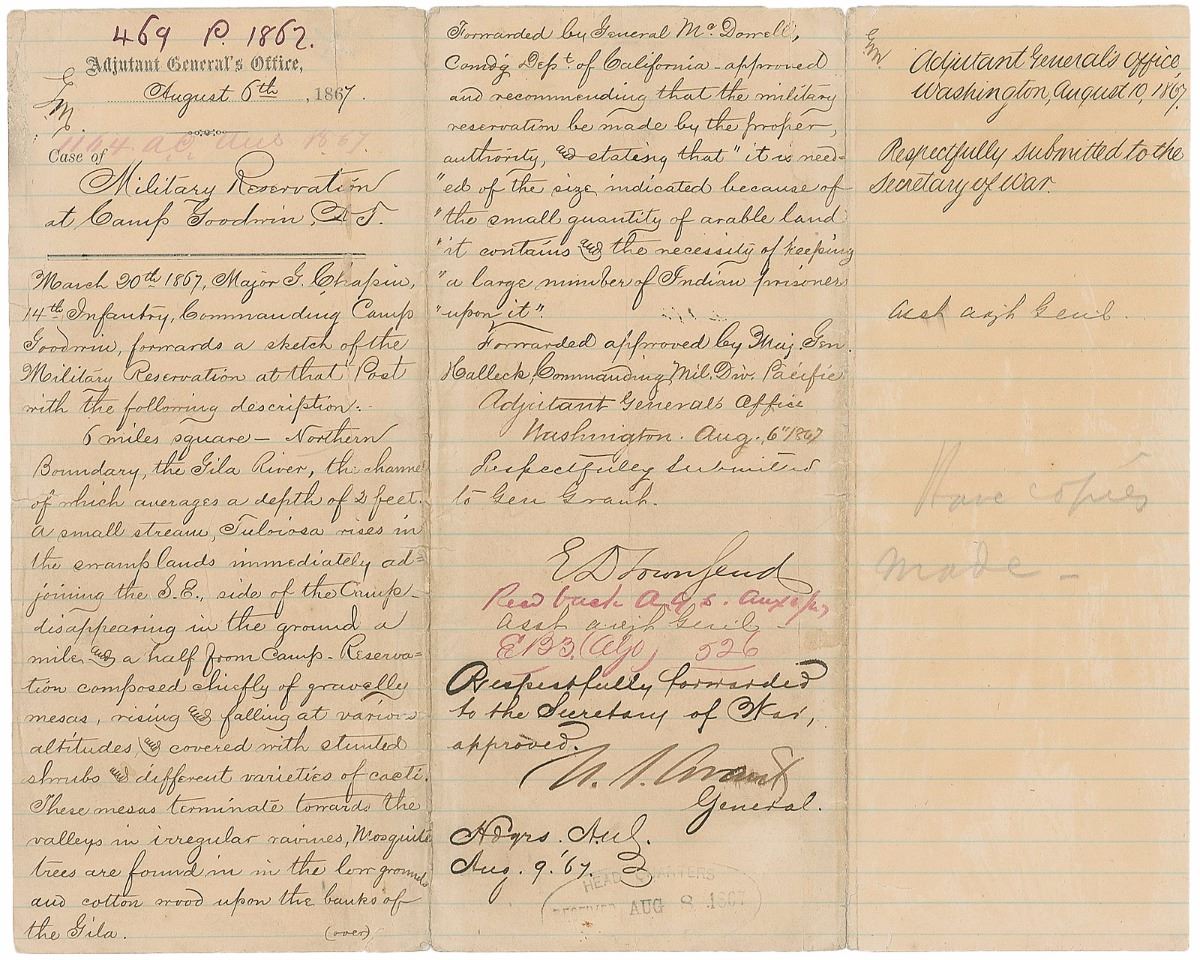 469 P. 1867.
Adjutant General's Office,
August 6th, 1867.
G.M.
1164 A.O. Aug 1867
Case of
Military Reservation
at Camp Goodwin, A.T.
March 20th 1867, Major G. Chapin,
14th Infantry, Commanding Camp
Goodwin, forwards a sketch of the
Military Reservation at that Post
with the following description:-
6 miles square - Northern
Boundary, the Gila River, the channel
of which averages a depth of 2 feet.
A small stream, Tulviosa rises in
the swamp lands immediately ad=
joining the S.E., side of the Camp-
disappearing in the ground a
mile and a half from Camp - Reserva=
tion composed chiefly of gravelly
mesas, rising and falling at various
altitudes, and covered with stunted
shrubs and different varieties of cacti.
These mesas terminate towards the
valleys in irregular ravines, Mosquite
trees are found in in the low grounds
and cotton wood upon the banks of
the Gila. (over)
Forwarded by General McDowell,
Comd'g Dept. of California - approved
and recommending that the military
reservation be made by the proper
authority, and stating that "it is need-
"ed of the size indicated because of
"the small quantity of arable land
"it contains and the necessity of keeping
"a large number of Indian prisoners
"upon it".
Forwarded approved by Maj. Gen
Halleck, Commanding Mil. Div. Pacific
Adjutant General's Office
Washington. Aug. 6" 1867
Respectfully submitted
to Gen Grant.
E D Townsend
Recd back A.G.O. Aug
Asst adjt Genl -
E.B.B. (Ago) 526
Respectfully forwarded
to the Secretary of War,
approved.
U. S. Grant
General.
Hdqrs. A.U.S.
Aug. 9. '67.
HEAD QUARTERS
RECEIVED AUG 8 1867
G.M.
Adjutant General's Office,
Washington, August 10, 1867.
Respectfully submitted to the
Secretary of War.
Asst adjt Genl.
Have copies
made -